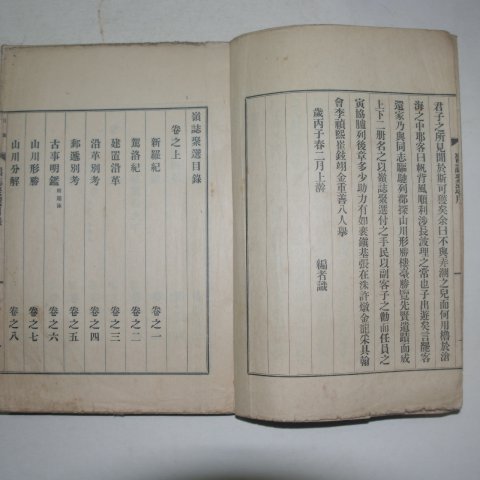 君子之所見開於斯可獲矣余曰不與弄潮之兒而何用櫓於滄
海之中耶客曰帆背風順利涉長波理之常也子出遊矣言罷客
還家乃與同志驅馳列郡探山川形勝樓臺勝覽先賢遺蹟而成
上下二册名之以嶺誌聚選付之手民以副客子之勸而任員之
寅協臚列後章多少助力有如裵鐵基張在洙許燉金龍宋具翰
會李禎熙崔銓翊金重善八人擧
歲丙子春二月上澣
編者識
嶺誌聚選目錄
卷之上
新羅紀 卷之一
駕洛紀 卷之二
建置沿革 卷之三
沿革別考 卷之四
郵遞別考 卷之五
古事明鑑 卷之六
山川形勝 卷之七
山川分解 卷之八